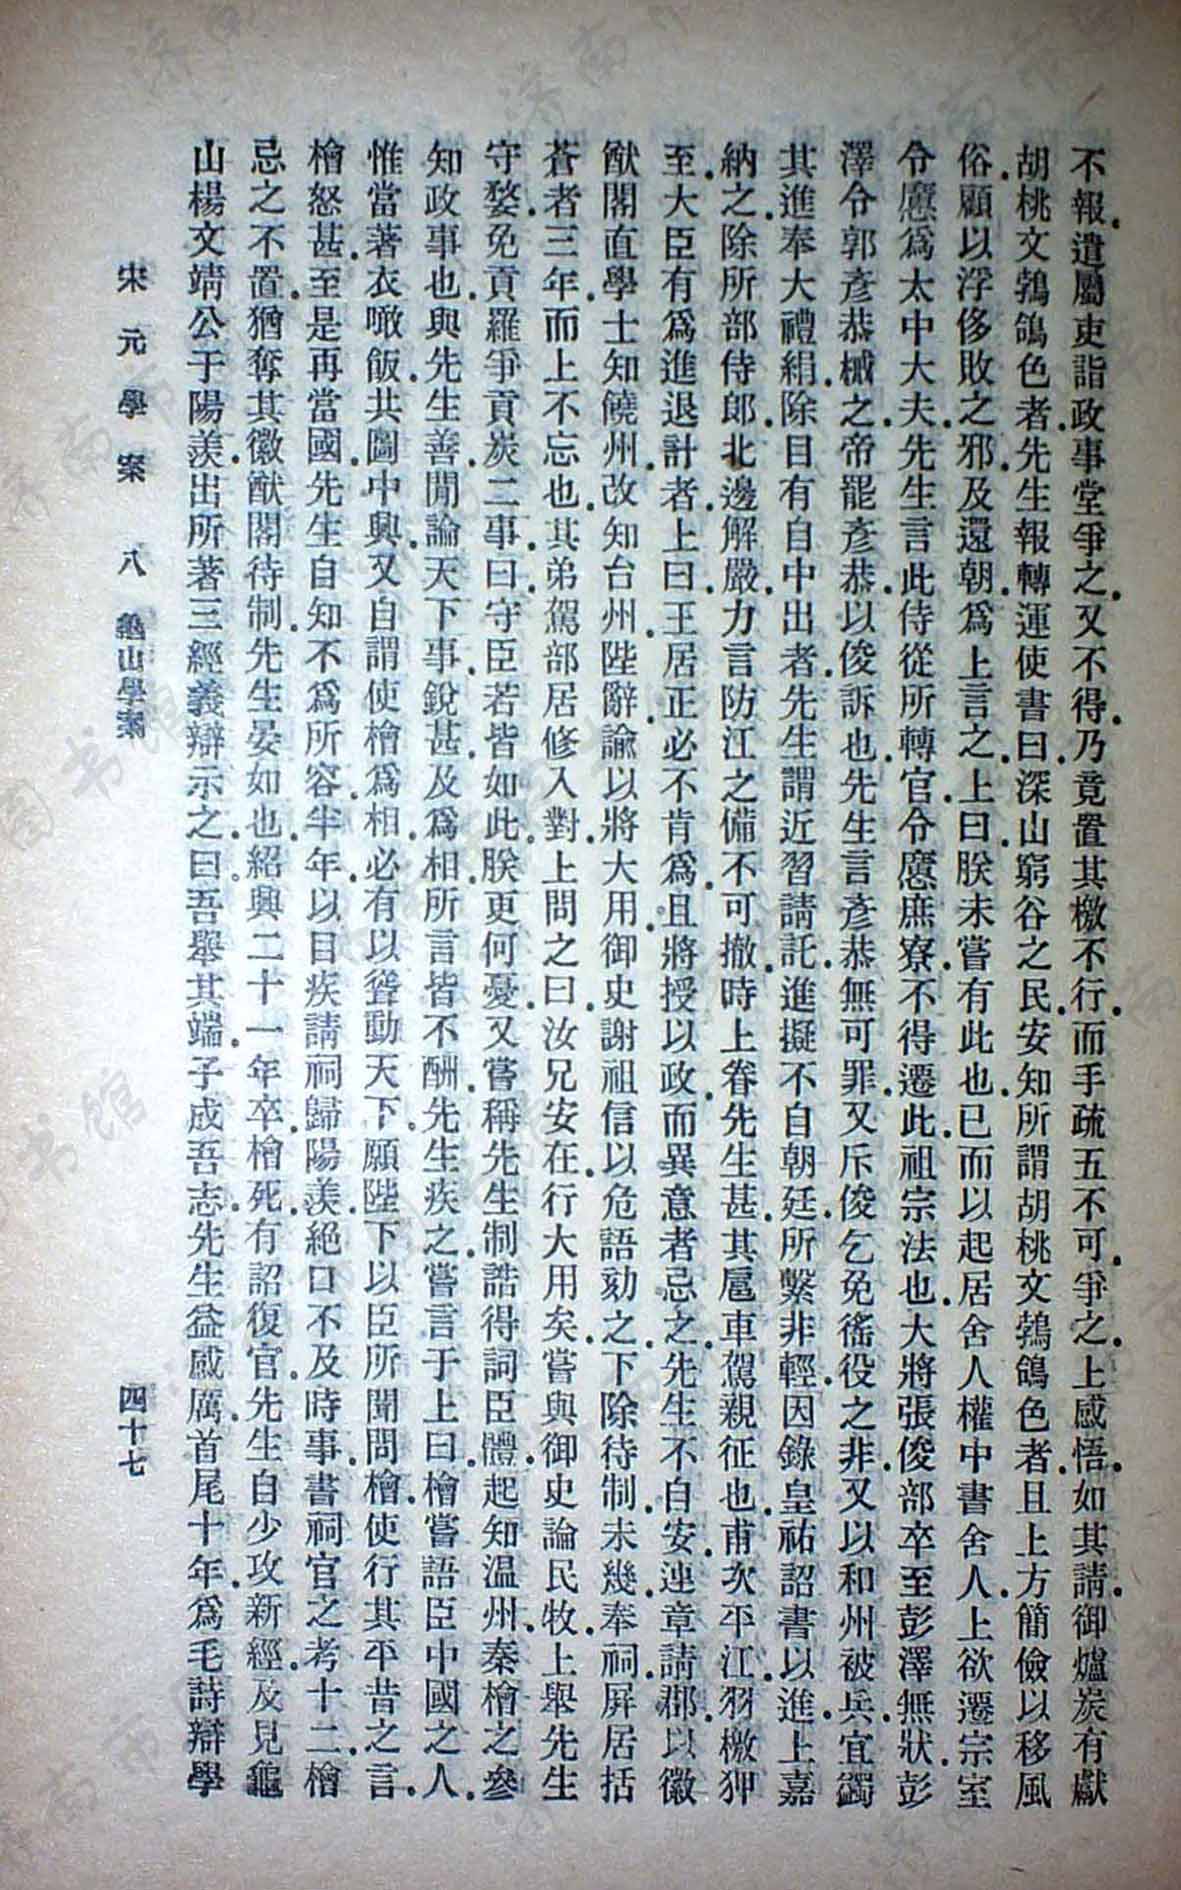 不報遣屬吏詣政事堂爭之又不得乃竟置其檄不行而手疏五不可爭之上感悟如其請御爐炭有獻
胡桃文鵓鴿色者先生報轉運使書曰深山窮谷之民安知所謂胡桃文鵓鴿色者且上方簡儉以移風
俗顧以浮侈敗之邪及還朝爲上言之上曰朕未嘗有此也已而以起居舍人權中書舍人上欲遷宗室
令懬爲太中大夫先生言此侍從所轉官令懬庶寮不得遷此祖宗法也大將張俊部卒至彭澤無狀彭
澤令郭彥恭械之帝罷彥恭以俊訴也先生言彥恭無可罪又斥俊乞免徭役之非又以和州被兵宜蠲
其進奉大禮絹除目有自中出者先生謂近習請託進擬不自朝廷所繫非輕因錄皇祐詔書以進上嘉
納之除所部侍郎北邊解嚴力言防江之備不可撤時上眷先生甚其扈車駕親征也甫次平江羽檄狎
至大臣有爲進退計者上曰王居正必不肯爲且將授以政而異意者忌之先生不自安連章請郡以徽
猷閣直學士知饒州改知台州陛辭諭以將大用御史謝祖信以危語劾之下除待制未幾奉祠屏居括
蒼者三年而上不忘也其弟駕部居修入對上問之曰汝兄安在行大用矣嘗與御史論民牧上舉先生
守婺免貢羅爭貢炭二事曰守臣若皆如此朕更何憂又嘗稱先生制誥得詞臣體起知温州秦檜之參
知政事也與先生善閒論天下事銳甚及爲相所言皆不酬先生疾之嘗言于上曰檜嘗語臣中國之人
惟當著衣噉飯共圖中興又自謂使檜爲相必有以聳動天下願陛下以臣所聞問檜使行其平昔之言
檜怒甚至是再當國先生自知不爲所容半年以目疾請祠歸陽羨絕口不及時事書祠官之考十二檜
忌之不置猶奪其徽猷閣待制先生晏如也紹興二十一年卒檜死有詔復官先生自少攻新經及見龜
山楊文靖公于陽羨出所著三經義辯示之曰吾舉其端子成吾志先生益感厲首尾十年爲毛詩辯學
宋元學案 八 龜山學案 四十七